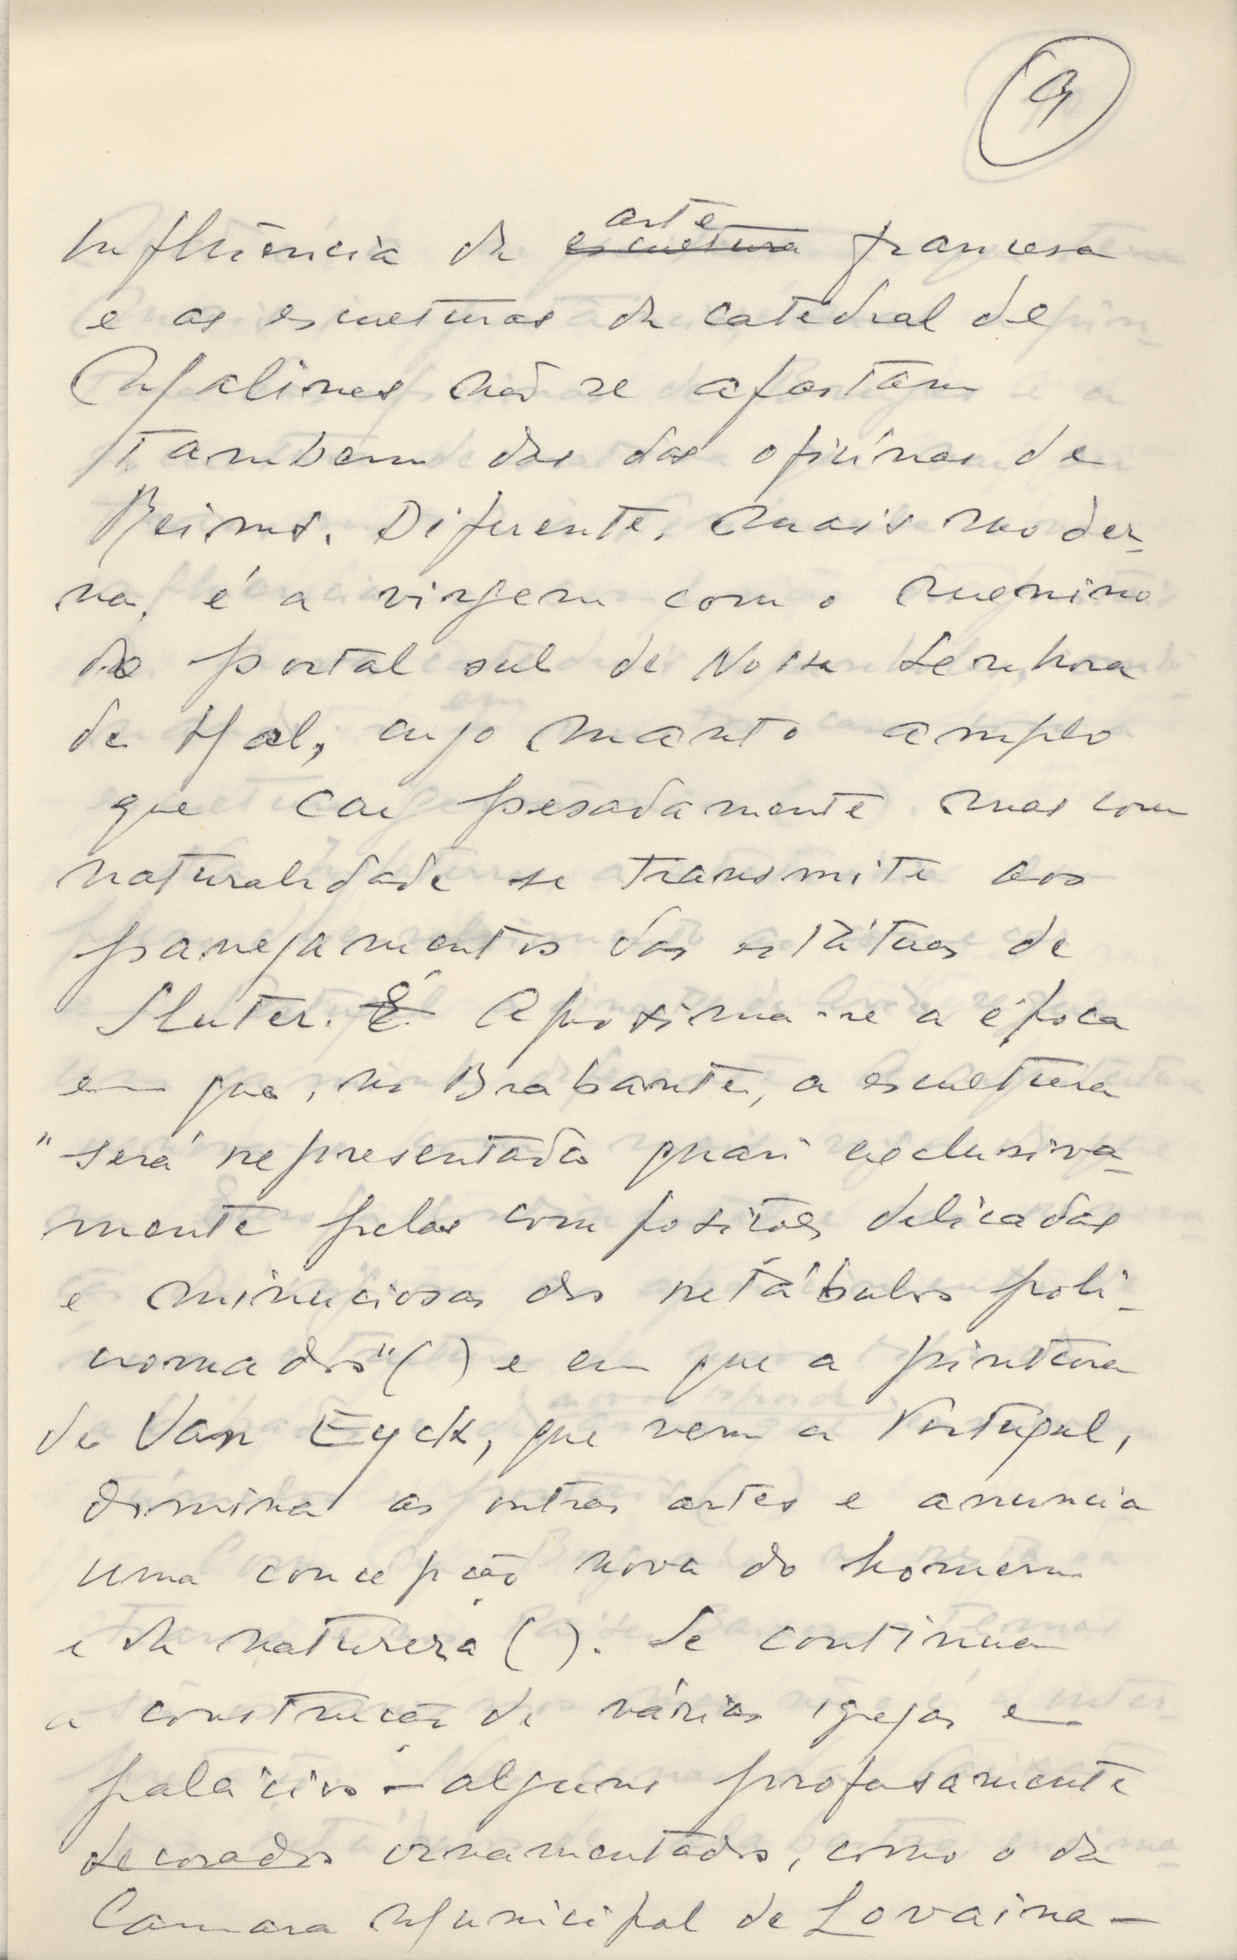 9
arte
influência da escultura francesa
e as esculturas da catedral de
Malines não se afastam
tambem das das oficinas de
Reims. Diferente, mais moder-
na, é a virgem com o menino
do portal sul de Nossa Senhora
de Hal, cujo manto amplo
que cai pesadamente mas com
naturalidade se transmite aos
panejamentos das estátuas de
Sluter. É Aproxima-se a época
em que, no Brabante, a escultura
"será representada quasi exclusiva-
mente pelas composições delicadas
e minuciosas dos retábulos poli-
cromados" ( ) e em que a pintura
de Van Eyck, que vem a Portugal,
domina as outras artes e anuncia
uma concepção nova do homem
e da natureza ( ). Se continua
a construção de várias igrejas e
palácios - alguns profusamente
decorados ornamentados, como o da
Camara Municipal de Lovaina -